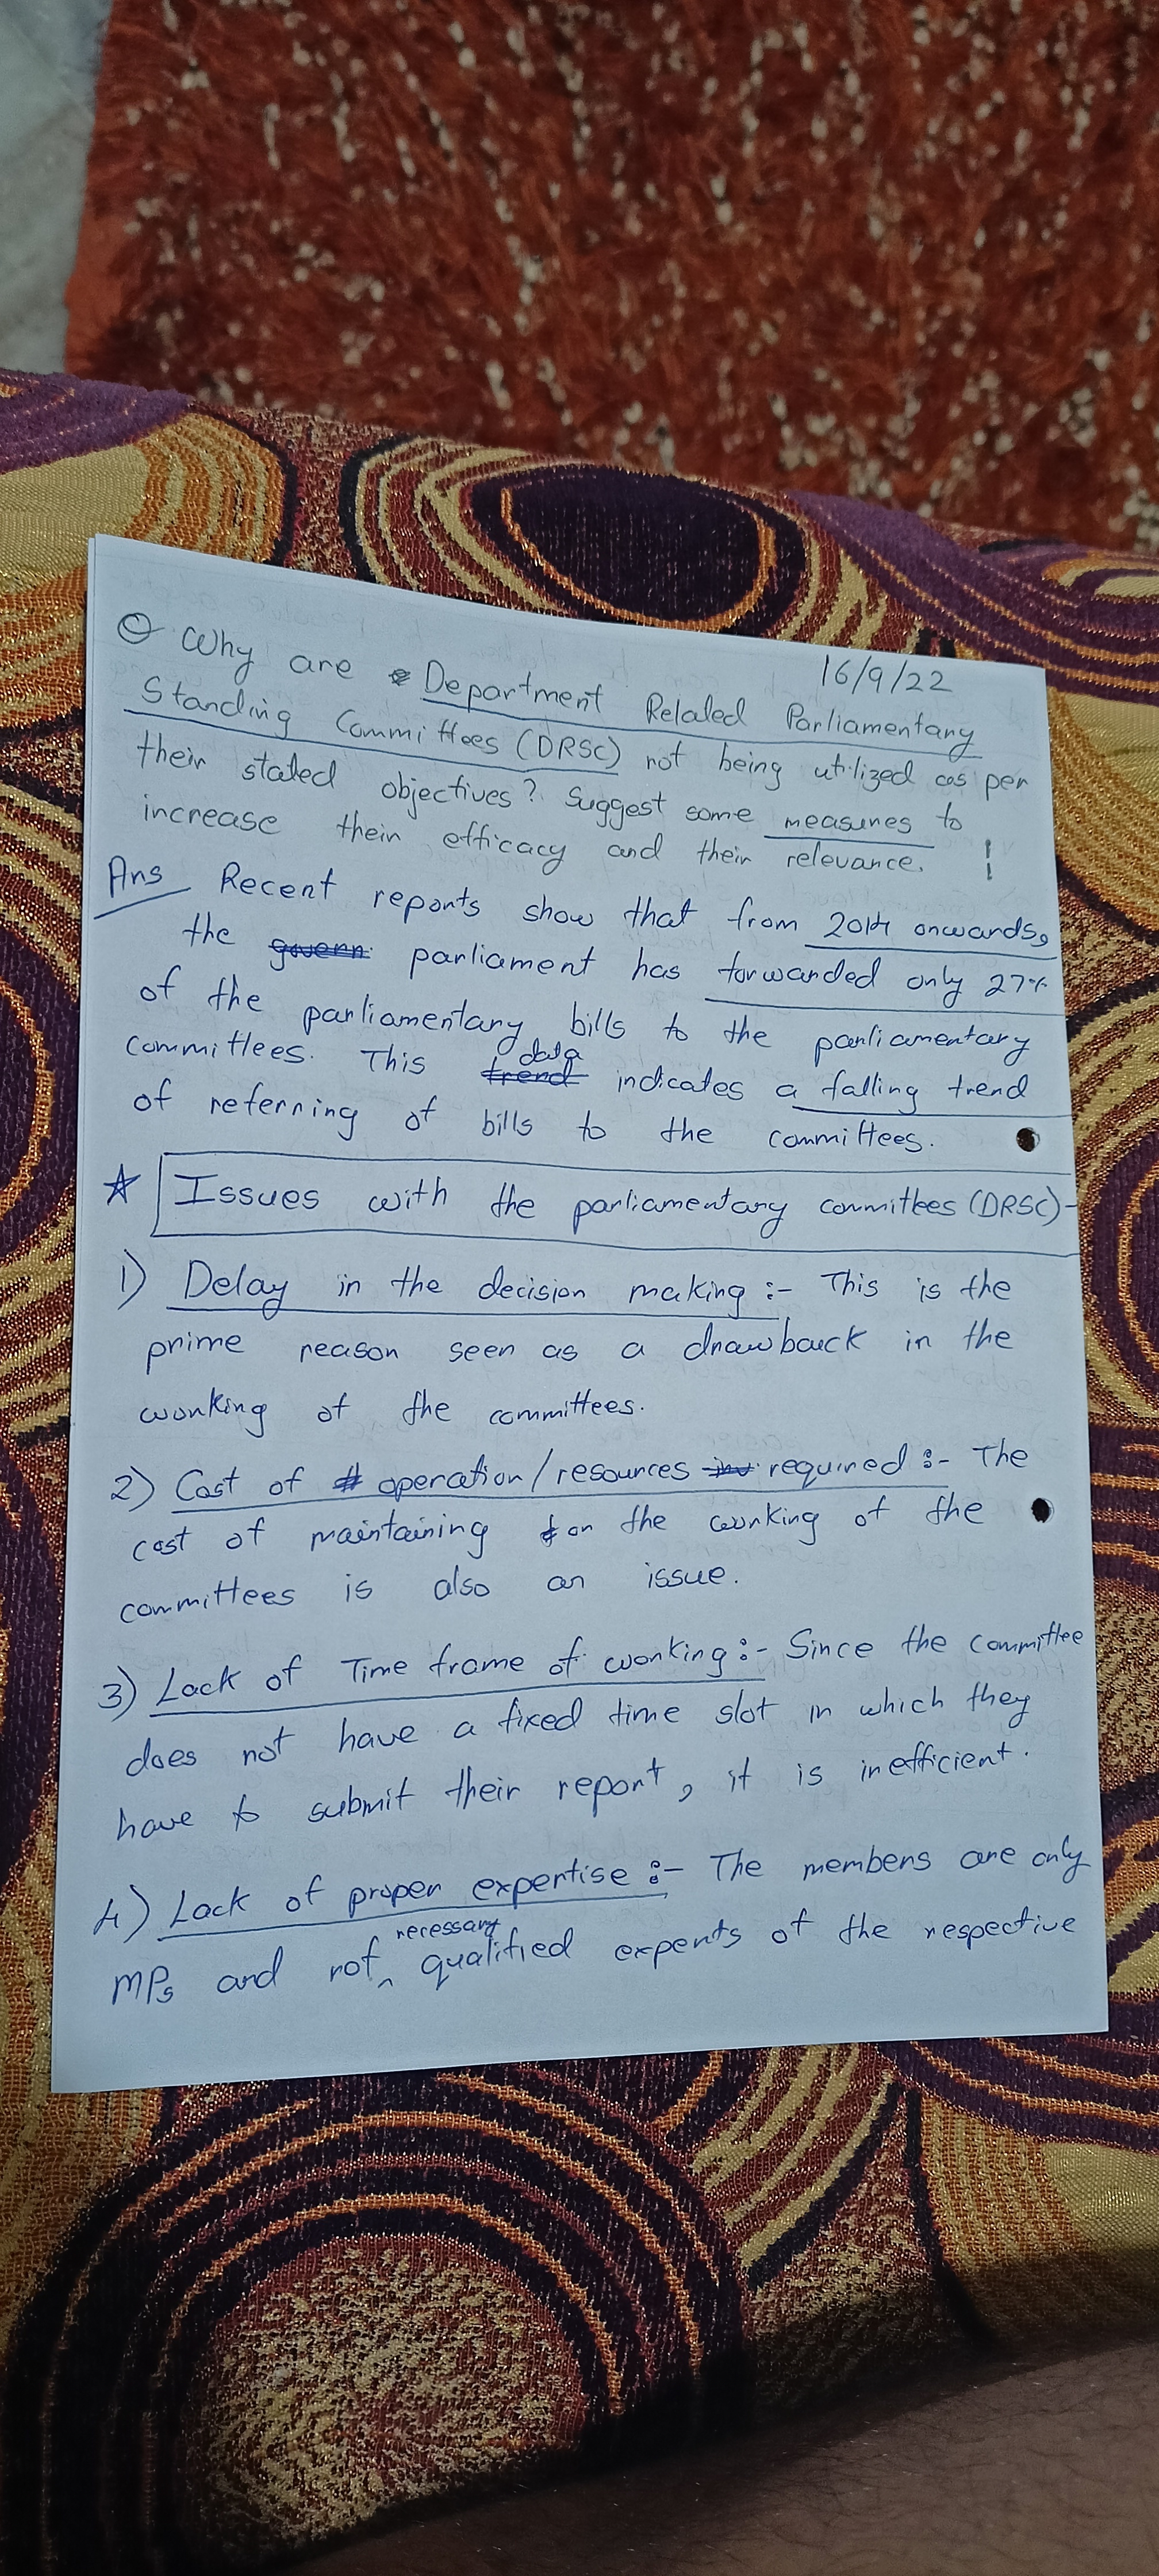 Q Why are Department Related Parliamentary
16/9/22
Standing Committees (DRSC) not being utilized as per
their stated objectives? Suggest some measures to
increase their efficacy and their relevance.
Ans Recent reports show that from 2014 onwards,
the govern parliament has forwarded only 27%
of the parliamentary bills to the parliamentary
committees. This trend data indicates a falling trend
of referring of bills to the committees.
Issues with the parliamentary committees (DRSC)-
1) Delay in the decision making :- This is the
prime reason seen as a drawback in the
working of the committees.
2) Cost of operation/resources required :- The
cost of maintaining for the working of the
committees is also an issue.
3) Lack of Time frame of working :- Since the committee
does not have a fixed time slot in which they
have to submit their report, it is inefficient.
4) Lack of proper expertise :- The members are only
MPs and not necessary qualified experts of the respective